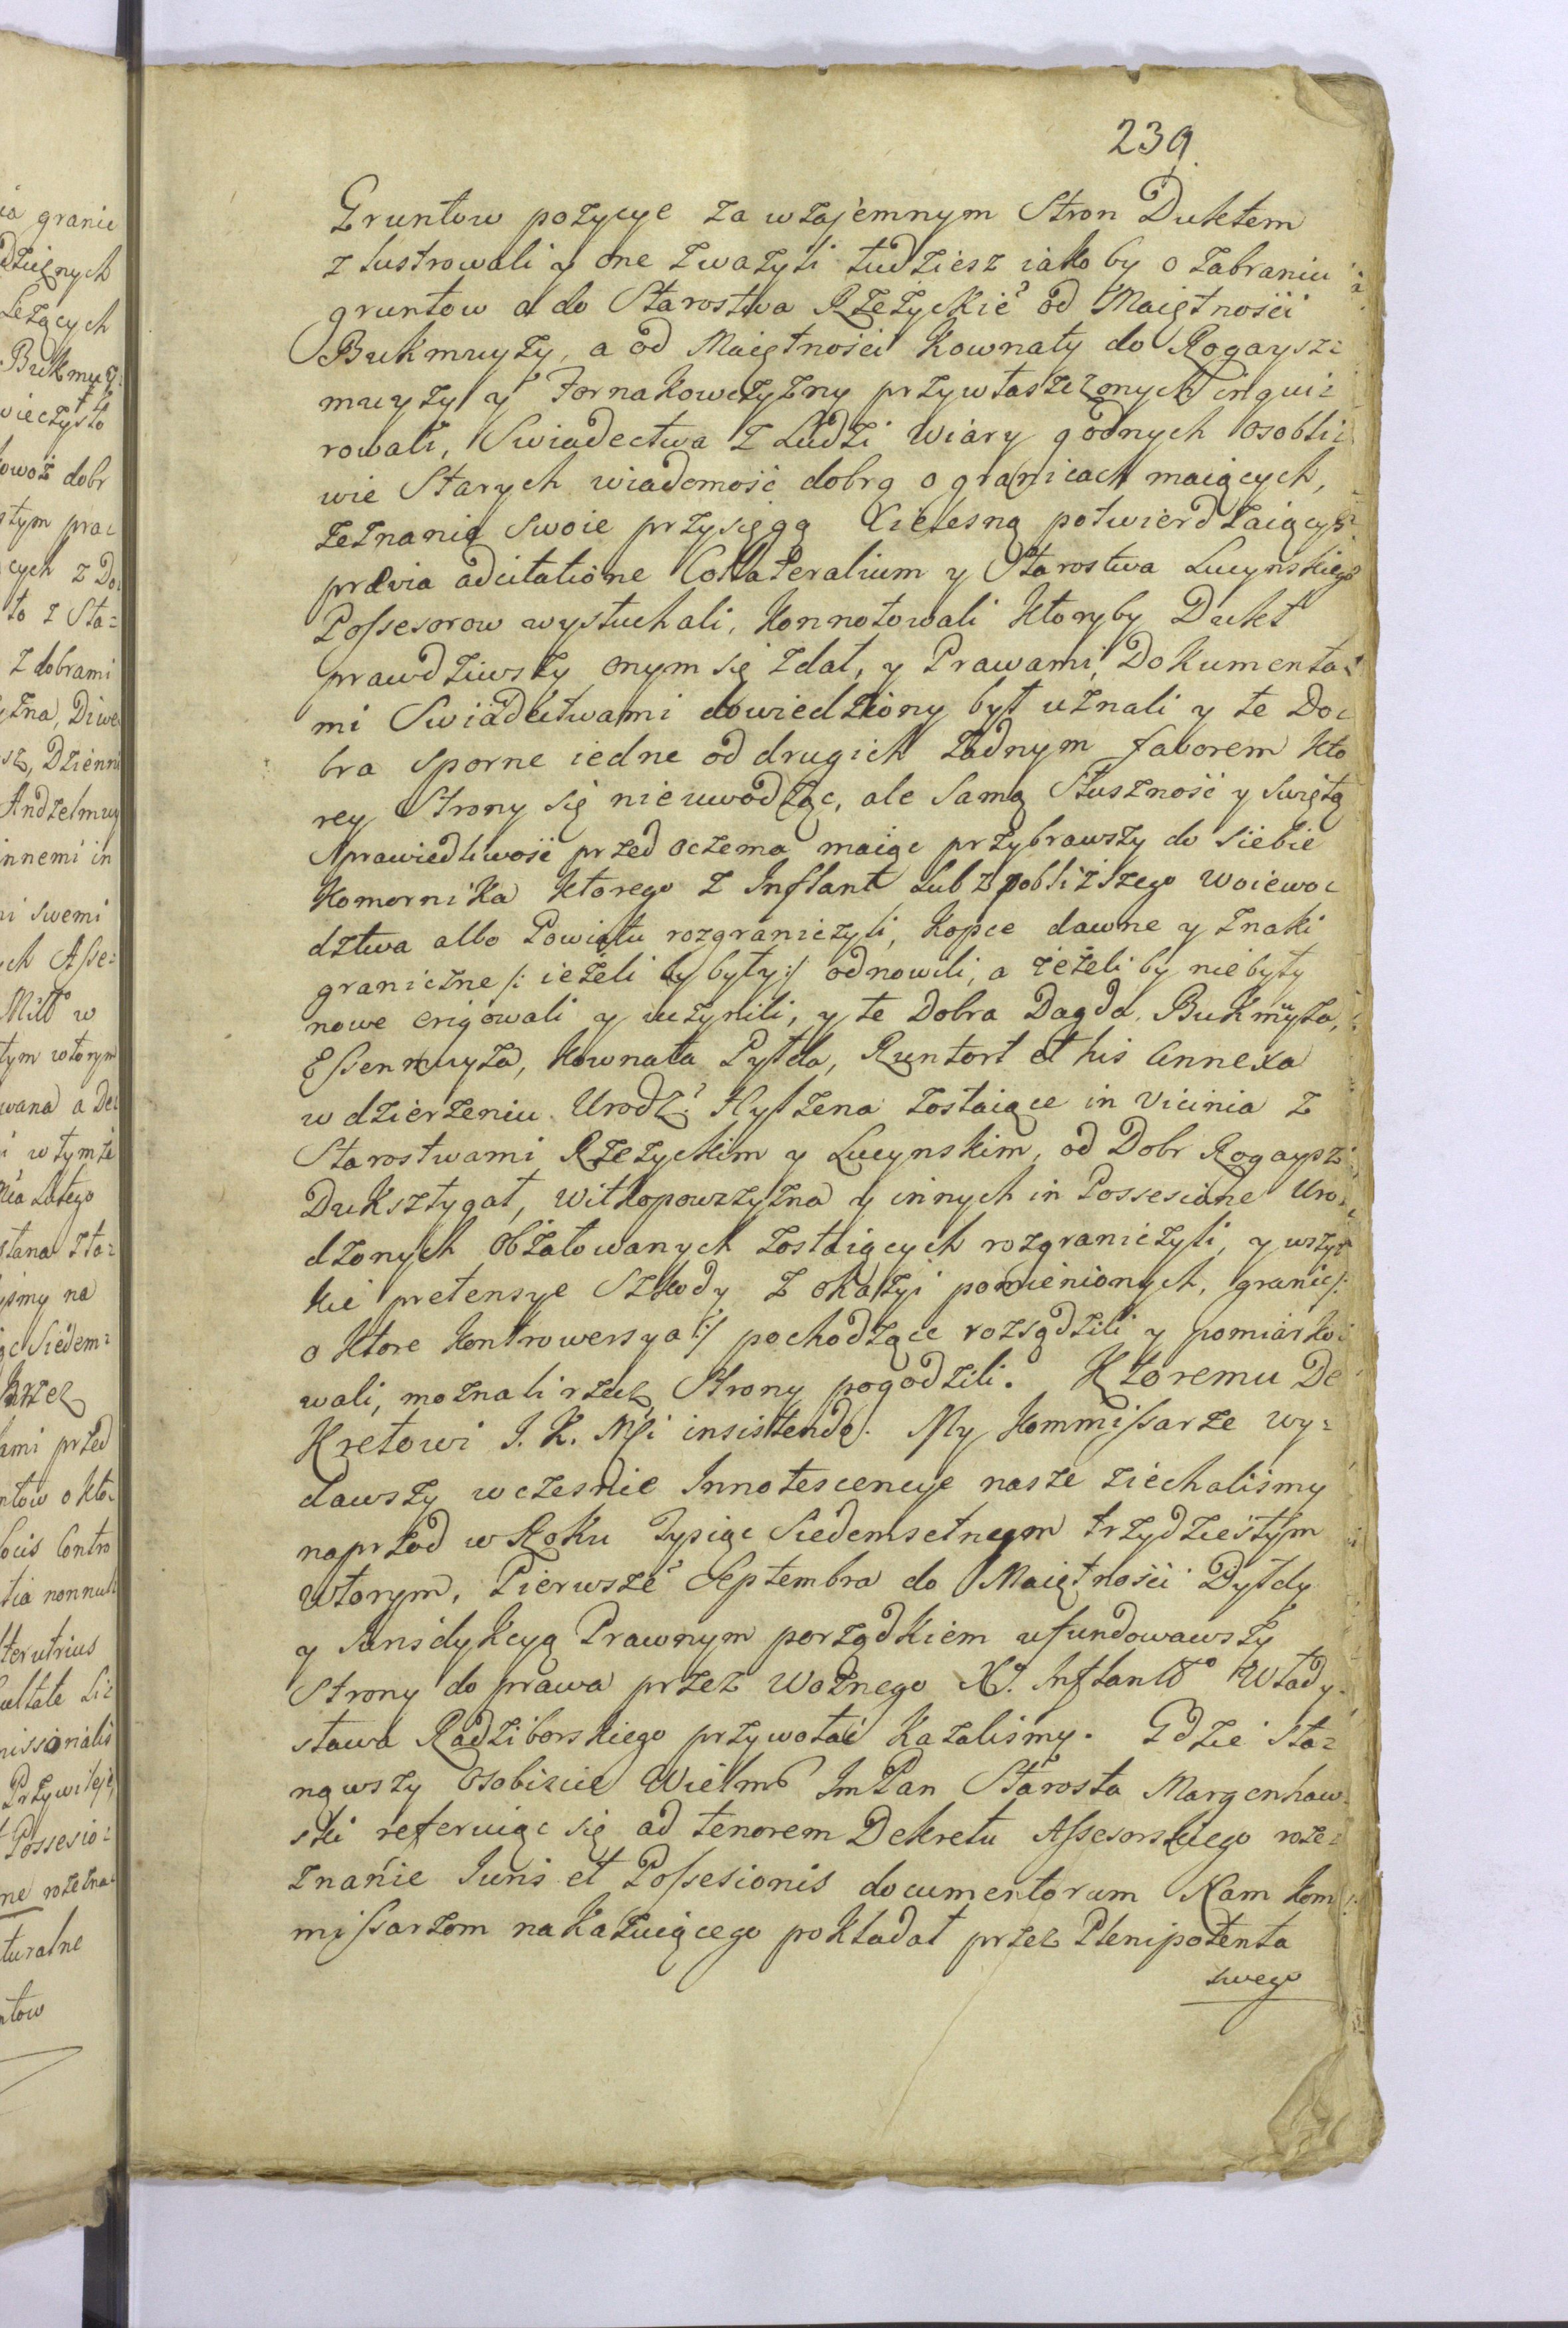 239.
Gruntow pozycye za wzajemnym Stron Duktem
zlustrowali y one zwazyli tudziesz iakoby o zabraniu
gruntow a do Starostwa Rzezyckie° od Maiętności
Bukmuyzy, a od Maiętności Kownaty do Rogaysz=
muyzy y Fornakowczyzny przywłaszczonych inqui=
rowali, Swiadectwa z Ludzi wiary godnych osobli=
wie Starych wiadomość dobrą o granicach maiących,
zeznanie swoie przysięgą Cielesną potwierdzaiących
prævia adcitatione Collateralium y Starostwa Lucynskiego
Possesorow wysłuchali, konnotowali ktoryby Dukt
prawdziwszy onym się zdał, y Prawami, Dokumenta=
mi Swiadectwami dowiedziony był uznali y te Do=
bra sporne iedne od drugich zadnym faborem kto
rey Strony się nieuwodząc, ale samą Słuszność y swiętą
Sprawiedliwość przed oczema maiąc przybrawszy do siebie
Komornika ktorego z Inflant lub z pobliższego woiewo=
dztwa albo Powiatu rozgraniczyli, kopce dawne y znaki
graniczne /: ieżeli by były :/ odnowili, a ieżeli by niebyły
nowe erigowali y uczynili, y te Dobra Dagda, Bukmuyża,
Essenmuyża, Kownata Pyłda, Runtort et his annexa
w dzierzeniu Urodz° Hylzena zostaiące in vicinia z
Starostwami Rzezyckim y Lucynskim, od Dobr Rogaysz=
Duksztygał, Witkopowszyzna y innych in Possesione Uro=
dzonych Obżałowanych zostaiących rozgraniczyli, y wszyt
kie pretensye Szkody z okazyi pomienionych, granic /:
o ktore kontrowersya :/ pochodzące rozsądzili y pomiarko=
wali, moznali rzecz Strony pogodzili. Ktoremu De
kretowi J. K. Mśi insistendo. My Kommissarze wy=
dawszy wczesnie Innotescencye nasze ziechalismy
naprzod w Roku Tysiąc Siedemsetnym trzydziestym
wtorym, Pierwsze° Septembra do Maiętności Pyłdy
y Jurisdykcyą Prawnym porządkiem ufundowawszy
Strony do prawa przez Woznego X. Inflant° Włady=
sława Radziborskiego przywołać kazalismy. Gdzie sta=
nąwszy osobiscie Wielm° ImPan Starosta Margenhaw=
ski referuiąc się ad tenorem Dekretu Assesorskiego roze=
znanie Juris et Possesionis documentorum Nam Kom
missarzom nakazuiącego pokładał przez Plenipotenta
swego